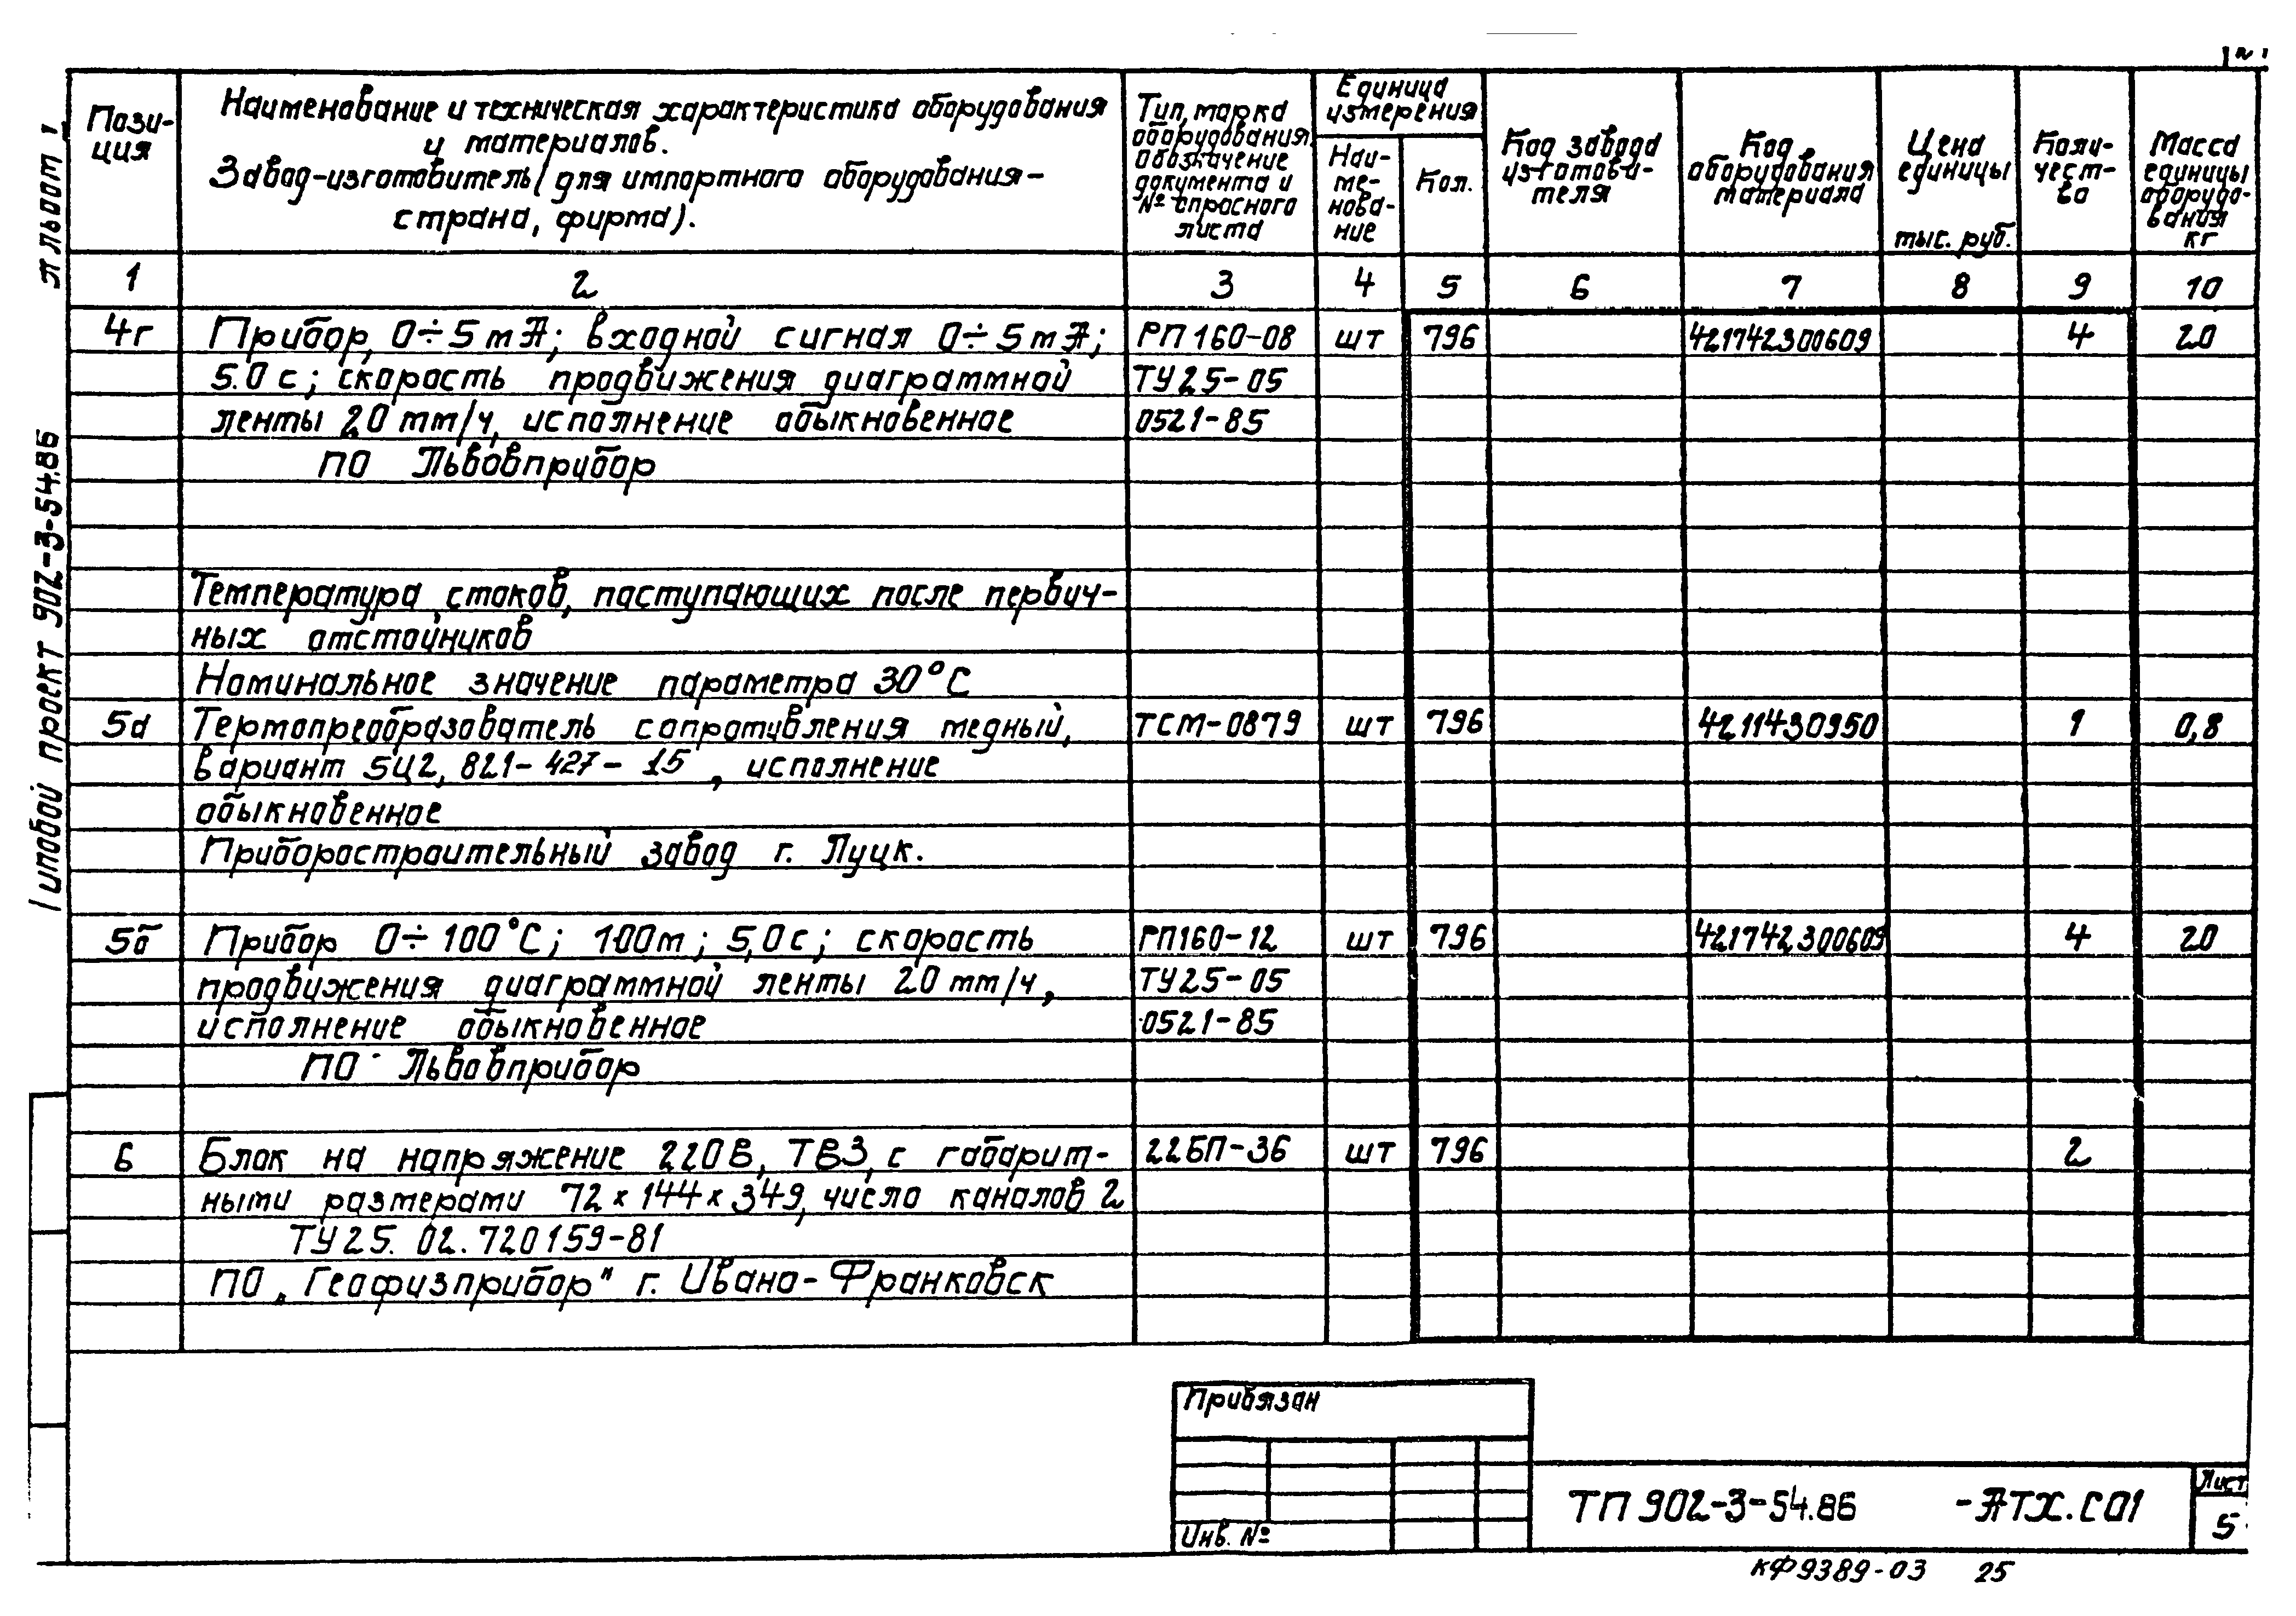 Альбом
Типовой проект 902-3-54.86
Пози-
ция
Наименование и техническая характеристика оборудования
и материалов.
Завод-изготовитель (для импортного оборудования-
страна, фирма).
Тип, марка
оборудования.
Обозначение
документа и
№ опросного
листа
Единица
измерения
Наи-
ме-
нова-
ние
Кол.
Код завода
изготови-
теля
Код
оборудования
материала
Цена
единицы
тыс. руб.
Коли-
чест-
во
Масса
единицы
оборудо-
вания
кг
1 2 3 4 5 6 7 8 9 10
4г Прибор, 0÷5 mA; входной сигнал 0÷5 mA; РП160-08 шт 796 421742300609 4 20
5.0 с; скорость продвижения диаграммной ТУ25-05
ленты 20 мм/ч, исполнение обыкновенное 0521-85
ПО Львовприбор
Температура стоков, поступающих после первич-
ных отстойников
Номинальное значение параметра 30°С
5а Термопреобразователь сопротивления медный, ТСМ-0879 шт 796 4211430950 1 0,8
вариант 5Ц2, 821-427-15, исполнение
обыкновенное
Приборостроительный завод г. Луцк.
5б Прибор 0÷100°С; 100м; 5,0с; скорость РП160-12 шт 796 421742300609 4 20
продвижения диаграммной ленты 20 мм/ч, ТУ25-05
исполнение обыкновенное 0521-85
ПО Львовприбор
6 Блок на напряжение 220В, ТВ3, с габарит- 22БП-36 шт 796 2
ными размерами 72×144×349, число каналов 2
ТУ25.02.720159-81
ПО „Геофизприбор" г. Ивано-Франковск
Привязан
Инв. №
ТП 902-3-54.86 -АТХ.С01
Лист
5
КФ9389-03 25